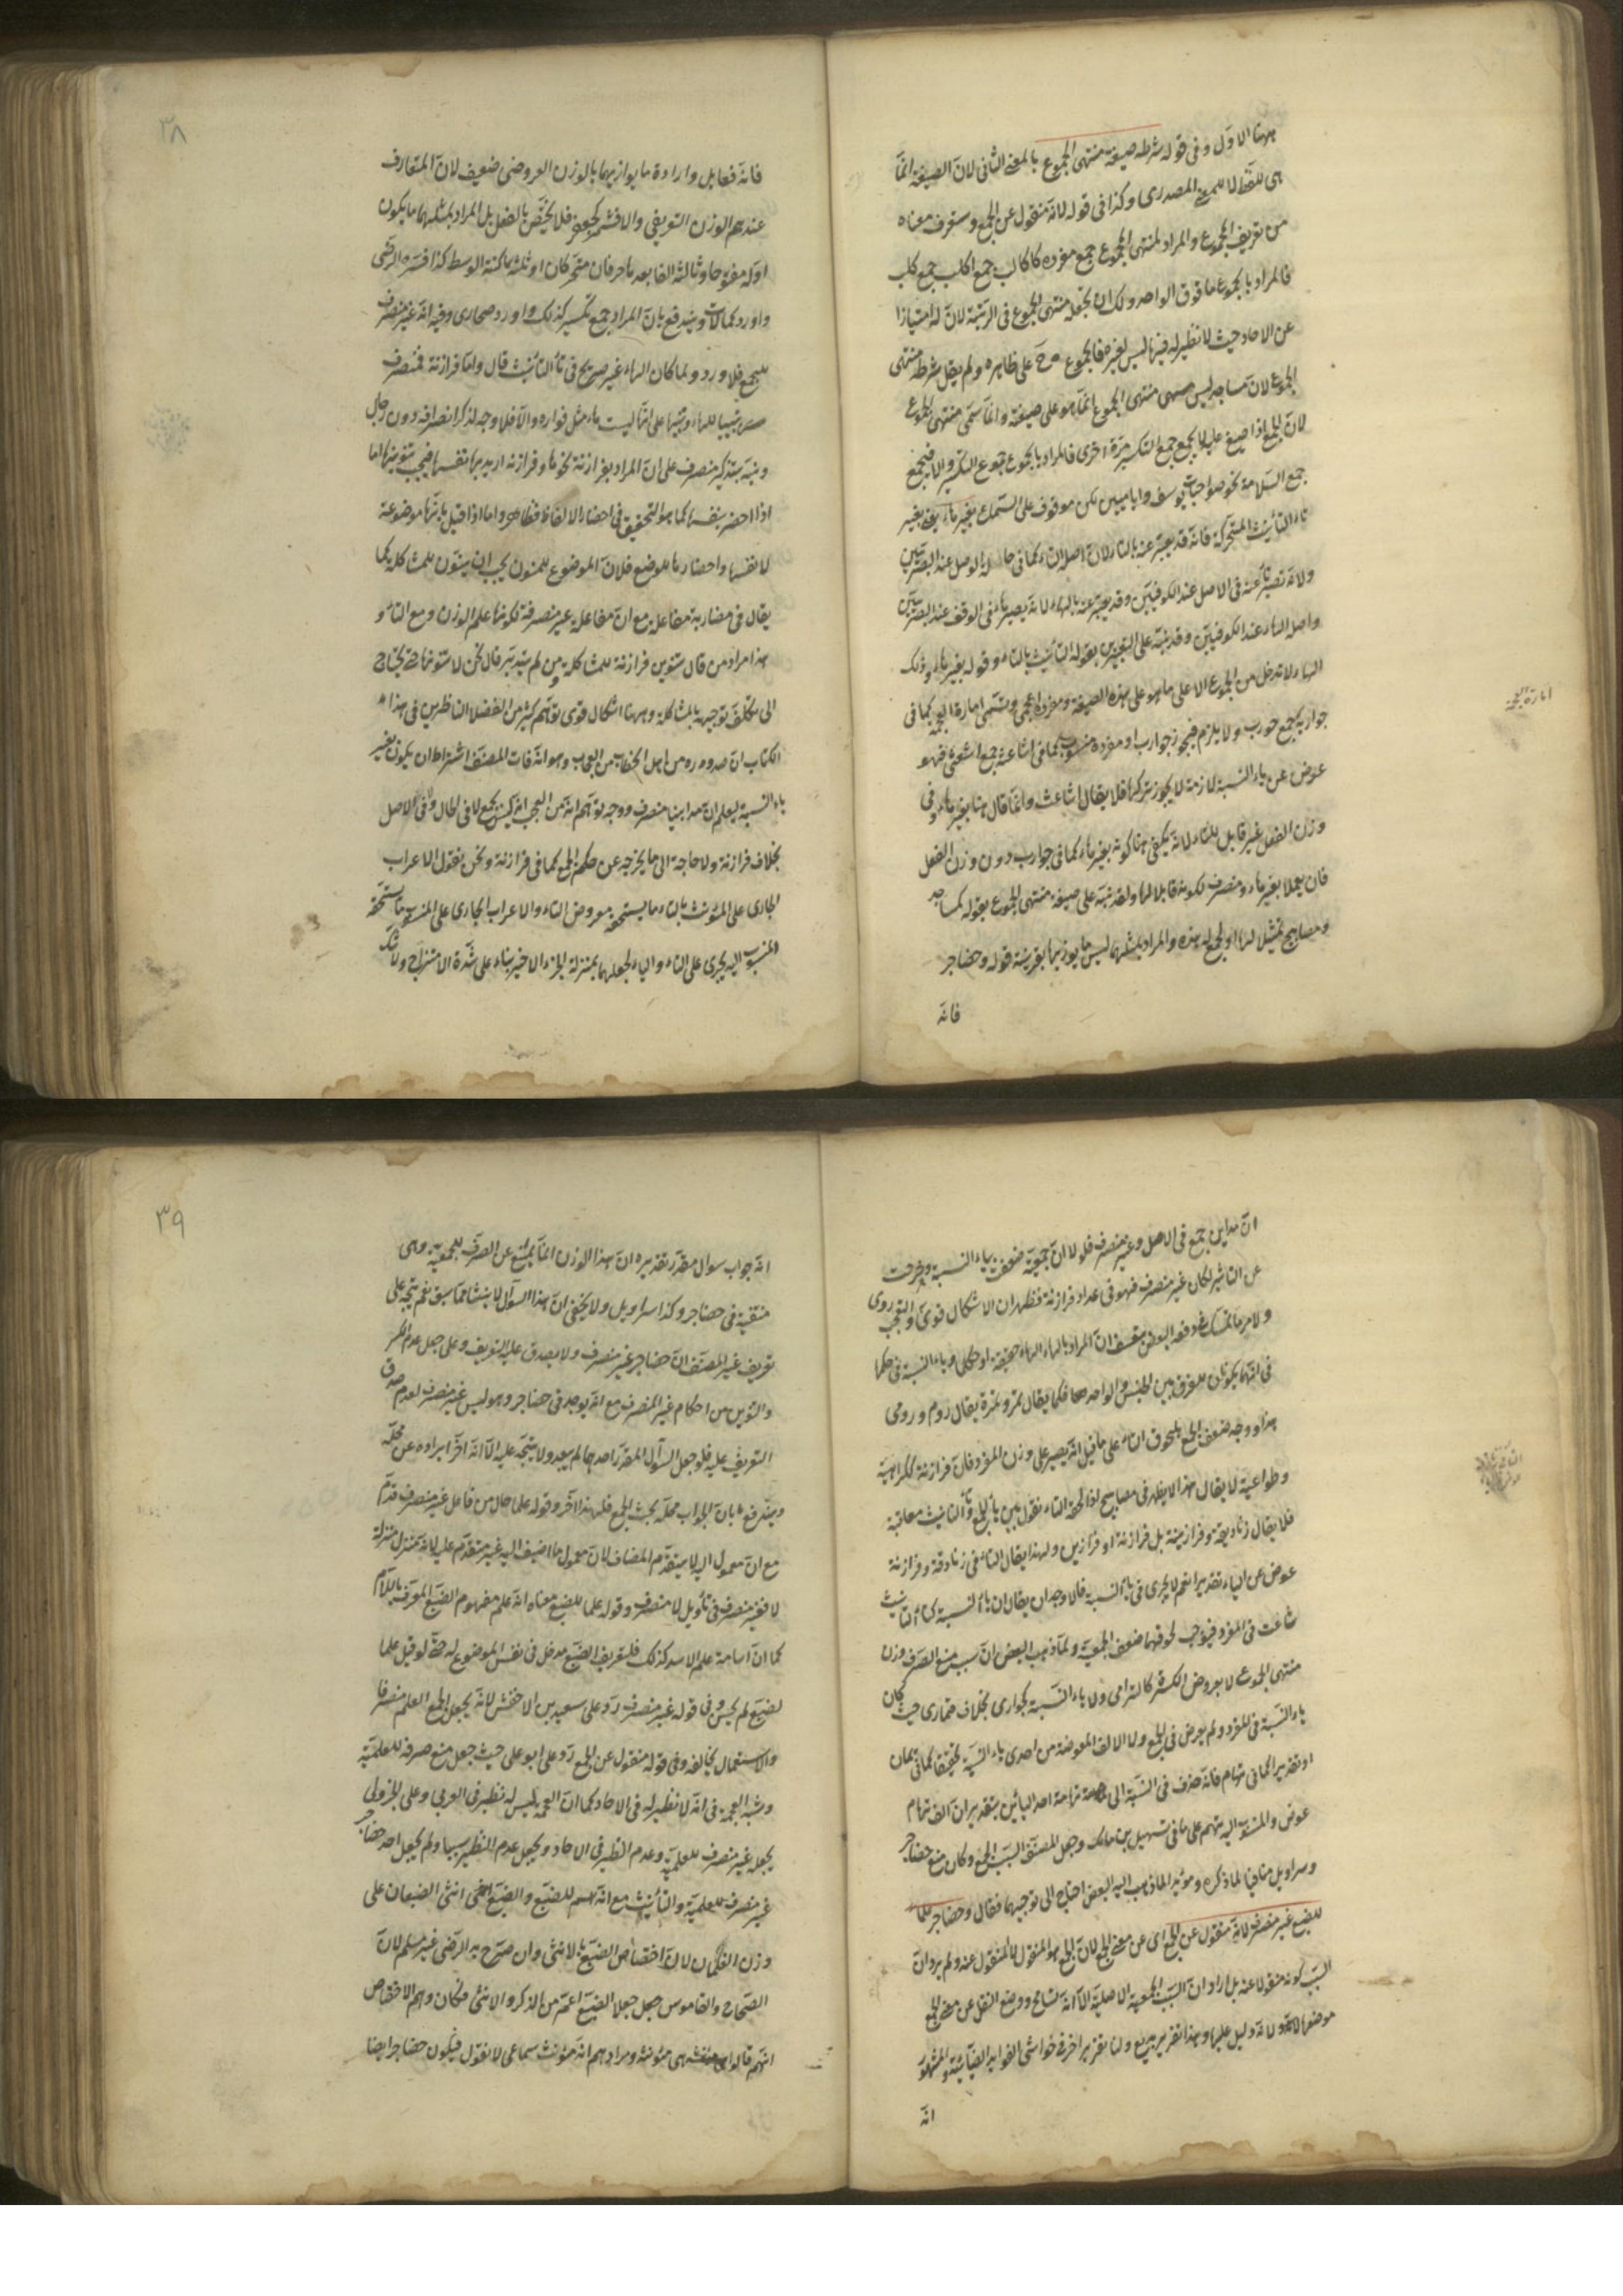 ههنا الاول وفى قوله شرطه صيغة منتهى الجموع بالمعنى الثانى لان الصيغة انما
هى للفظ لا للمعنى المصدرى وكذا فى قوله لانه منقول عن الجمع وستعرف معناه
من تعريف المجموع والمراد لمنتهى الجموع جمع مفرده كاكالب جمع اكلب جمع كلب
فالمراد بالجموع ما فوق الواحد ولك ان تجعله منتهى الجموع فى الرتبة لان له امتيازا
عن الاحاد حيث لا نظير له فيها ليس لغيره فالجموع ح على ظاهره ولم يقل شرطه منتهى
الجموع لان مساجد ليس منتهى الجموع انما هو على صيغته وانما سمى منتهى الجموع
لان الجمع اذا صيغ عليه لا يجمع جمع التكسير مرة اخرى فالمراد بالجموع جموع التكسير والا فيجمع
جمع السلامة نحو صواحبات يوسف وايامنين لكن موقوف على السماع بغير هاء يعنى بغير
تاء التأنيث المتحركة فانه قد يعبر عنه بالتاء لان اصله التاء كما فى حالة الوصل عند البصريين
ولانه تصير تاء عنه فى الاصل عند الكوفيين وقد يعبر عنه بالهاء لانه يصير هاء فى الوقف عند البصريين
واصل الهاء عند الكوفيين وقد نبه على التعبيرين بقوله التأنيث بالتاء وقوله بغير هاء وذلك
الهاء لا تدخل من الجموع الا على ما هو على هذه الصيغة ومفرده اعجمى وتسمى امارة العجمة كما فى
جواربة جمع جورب ولا يلزم فيجوز جوارب او مفرده منسوب كما فى اشاعثة جمع اشعثى فهو
عوض عن ياء النسبة لازمة لا يجوز تركها فلا يقال اشاعث وانما قال هنا بغير هاء وفى
وزن الفعل غير قابل للتاء لانه يكفى هنا كونه بغير هاء كما فى جوارب دون وزن الفعل
فان يعملا بغير هاء ومنصرف لكونه قابلا لها ولقد نبه على صيغة منتهى الجموع بقوله كمساجد
ومصابيح تمثيل لها او لجمع له هذه والمراد بمثلهما ليس ما يوزنهما بقرينة قوله وحضاجر
فانه
امارة العجمة
٣٨
فانه فعابل وارادة ما يوازيهما بالوزن العروضى ضعيف لان المتعارف
عندهم الوزن التصريفى والا فشمر كجعفر فلا يختص بالفعل بل المراد بمثلهما ما يكون
اوله مفتوحا وثالثه الفا بعده حرفان متحركان او ثلثة ساكنة الوسط كذا فسره الرضى
واورد كمالات ويندفع بان المراد جمع تكسير كذلك واورد صحارى وفيه انه غير منصرف
للجمع فلا ورود ولما كان الهاء غير صريح فى تاء التأنيث قال واما فرازنة فمنصرف
تنبيها للهاء وتنبيها على انها ليست هاء مثل فواره والا فلا وجه لذكر انصرافه دون رجال
ونبه بتذكير منصرف على ان المراد بفرازنة نحوها وفرازنة اريد بها نفسها فيجب تنوينها اما
اذا احضر بنفسها كما هو التحقيق فى احضار الالفاظ فظاهر واما اذا قيل بانها موضوعة
لانفسها واحضارها للوضع فلان الموضوع للمنون يجب ان ينون للمشاكلة كما
يقال فى مضاربة مفاعلة مع ان مفاعلة غير منصرفة لكونها علم الوزن ومع التاء و
هذا مراد من قال تنوين فرازنة للمشاكلة ومن لم يتدبر قال نحن لا ننونها حتى يحتاج
الى تكلف توجيهه بالمشاكلة وههنا اشكال قوى توهم كثير من الفضلاء الناظرين فى هذا
الكتاب ان صدوره من اهل الخطاب من العجاب وهو انه فات المصنف اشتراط ان يكون بغير
ياء النسبة ليعلم ان مداينيا منصرف ووجه توهم انه من العجب انه ليس بجمع لا فى الحال ولا فى الاصل
بخلاف فرازنة ولا حاجة الى ما يخرجه عن حكم الجمع كما فى فرازنة ونحن نقول الاعراب
الجارى على المؤنث بالتاء ما يستحقه معروض التاء والاعراب الجارى على المنسوب ما يستحقه
المنسوب اليه يجرى على التاء والياء لجعلهما بمنزلة الجزء الاخير بناء على شدة الامتزاج ولا شك
ان مداين جمع فى الاصل وغير منصرف فلولا ان جمعيته ضعفت بياء النسبة وخرجت
عن التأثير لكان غير منصرف فهو فى عداد فرازنة فظهر ان الاشكال قوى والتعجب روى
ولا مر ما تمسك دفعه البعض بتعسف ان المراد بالهاء الهاء حقيقة او حكما وياء النسبة فى حكمها
فى انهما يكونان للفرق بين الجنس والواحد فكما يقال تمر وتمرة يقال روم ورومى
هذا ووجه ضعف الجمع بلحوق التاء على ما قيل انه يصير على وزن المفرد فان فرازنة ككراهية
وطواعية لا يقال هذا لا يظهر فى مصابيح اذا لحقه التاء نقول بين ياء الجمع وتاء التأنيث معاقبة
فلا يقال زناديقة وفرازينة بل فرازنة او فرازين ولهذا يقال التاء فى زنادقة وفرازنة
عوض عن الياء تقديرا نعم لا يجرى فى ياء النسبة فالاوجه ان يقال ان ياء النسبة كتاء التأنيث
شاعت فى المفرد فيوجب لحوقهما ضعف الجمعية ولما ذهب البعض ان سبب منع الصرف وزن
منتهى الجموع لا بعروض الكسرة كالترامى ولا ياء النسبة كحوارى بخلاف قمارى حيث كان
ياء النسبة فى المفرد ولم يعرض فى الجمع ولا الالف المعوضة من احدى ياء النسبة تحقيقا كما فى يمان
او تقديرا كما فى تهام فانه حذف فى النسبة الى تهامة احد اليائين بتقدير ان الف تهام
عوض والمنسوب اليه تهم على ما فى تسهيل بن مالك وجعل المصنف السبب الجمع وكان منع حضاجر
وسراويل منافيا لما ذكره ومؤيدا لما ذهب اليه البعض احتاج الى توجيههما فقال وحضاجر علما
للضبع غير منصرف لانه منقول عن الجمع اى عن معنى الجمع لان الجمع هو المنقول لا المنقول عنه ولم يرد ان
السبب كونه منقولا عنه بل اراد ان السبب الجمعية الاصلية الا انه تسامح ووضع النقل عن معنى الجمع
موضعها لانه دليل عليها وهذا تقرير بديع ولنا تقرير اخر فى حواشى الفوايد الضيائية والمشهور
انه
٣٩
انه جواب سوال مقدر تقديره ان هذا الوزن انما يمتنع عن الصرف للجمعية وهى
منتفية فى حضاجر وكذا سراويل ولا يخفى ان هذا السؤال لا ينشأ مما سبق نعم يتجه على
تعريف غير المصنف ان حضاجر غير منصرف ولا يصدق عليه التعريف وعلى جعل عدم الكسر
والتنوين من احكام غير المنصرف مع انه يوجد فى حضاجر وهو ليس غير منصرف لعدم صدق
التعريف عليه فلو جعل السؤال المقدر احدهما لم يبعد ولا يتجه عليه الا انه اخر ايراده عن محله
ويندفع بان الجواب محله بحث الجمع فلهذا اخر وقوله علما حال من فاعل غير منصرف قدم
مع ان معمول المضاف اليه لا يتقدم المضاف لان معمول ما اضيف اليه غير متقدم عليه لانه متنزل منزلة
لا فغير منصرف فى تأويل لا منصرف وقوله علما للضبع معناه انه علم مفهوم الضبع المعرف باللام
كما ان اسامة علم الاسد كذلك فلتعريف الضبع مدخل فى نفس الموضوع له حتى لو قيل علما
لضبع لم يحسن وفى قوله غير منصرف رد على سعيد بن الاخفش لانه يجعل الجمع العلم منصرفا
والاستعمال يخالفه وفى قوله منقول عن الجمع رد على ابو على حيث جعل منع صرفه للعلمية
وشبه العجمة فى انه لا نظير له فى الاحاد كما ان العجمة ليس له نظير فى العربى وعلى الجزولى
يجعله غير منصرف للعلمية وعدم النظير فى الاحاد ويجعل عدم النظير سببا ولم يجعل احد حضاجر
غير منصرف للعلمية والتأنيث مع انه اسم للضبع والضبع انثى الضبعان على
وزن الفعلان لان اختصاص الضبع بالانثى وان صرح به الرضى غير مسلم لان
الصحاح والقاموس جعل جعلا الضبع اعم من الذكر والانثى فكان وهم الاختصاص
انهم قالوا هى مؤنثة ومرادهم انه مؤنث سماعى لا نقول فيكون حضاجر ايضا